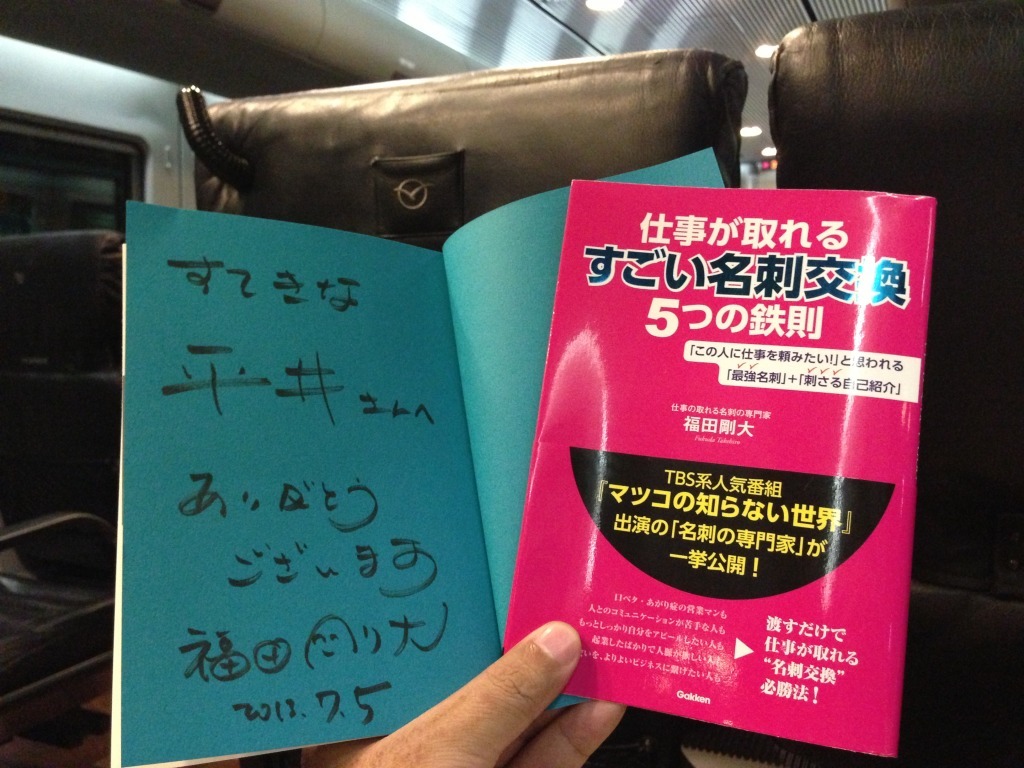 すてきな
平井さんへ
ありがとう
ございます
福田剛大
2013.7.5
仕事が取れる
すごい名刺交換
5つの鉄則
「この人に仕事を頼みたい!」と思われる
「最強名刺」+「刺さる自己紹介」
仕事の取れる名刺の専門家
福田剛大
Fukuda Takehiro
TBS系人気番組
『マツコの知らない世界』
出演の「名刺の専門家」が
一挙公開!
口ベタ・あがり症の営業マンも
人とのコミュニケーションが苦手な人も
もっとしっかり自分をアピールしたい人も
起業したばかりで人脈が欲しい人も
を、よりよいビジネスに繋げたい人も
渡すだけで
仕事が取れる
"名刺交換"
必勝法!
Gakken